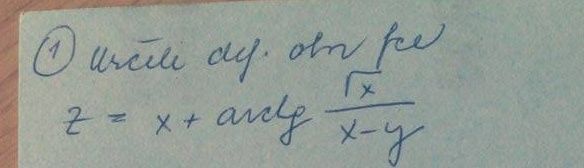 ① Určete def. obor fce
z = x + arctg √x / (x-y)